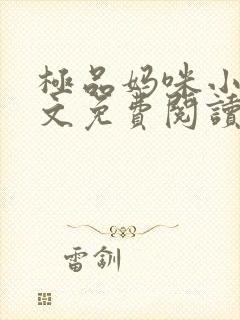 極品妈咪小
文免費閱讀
雷釧